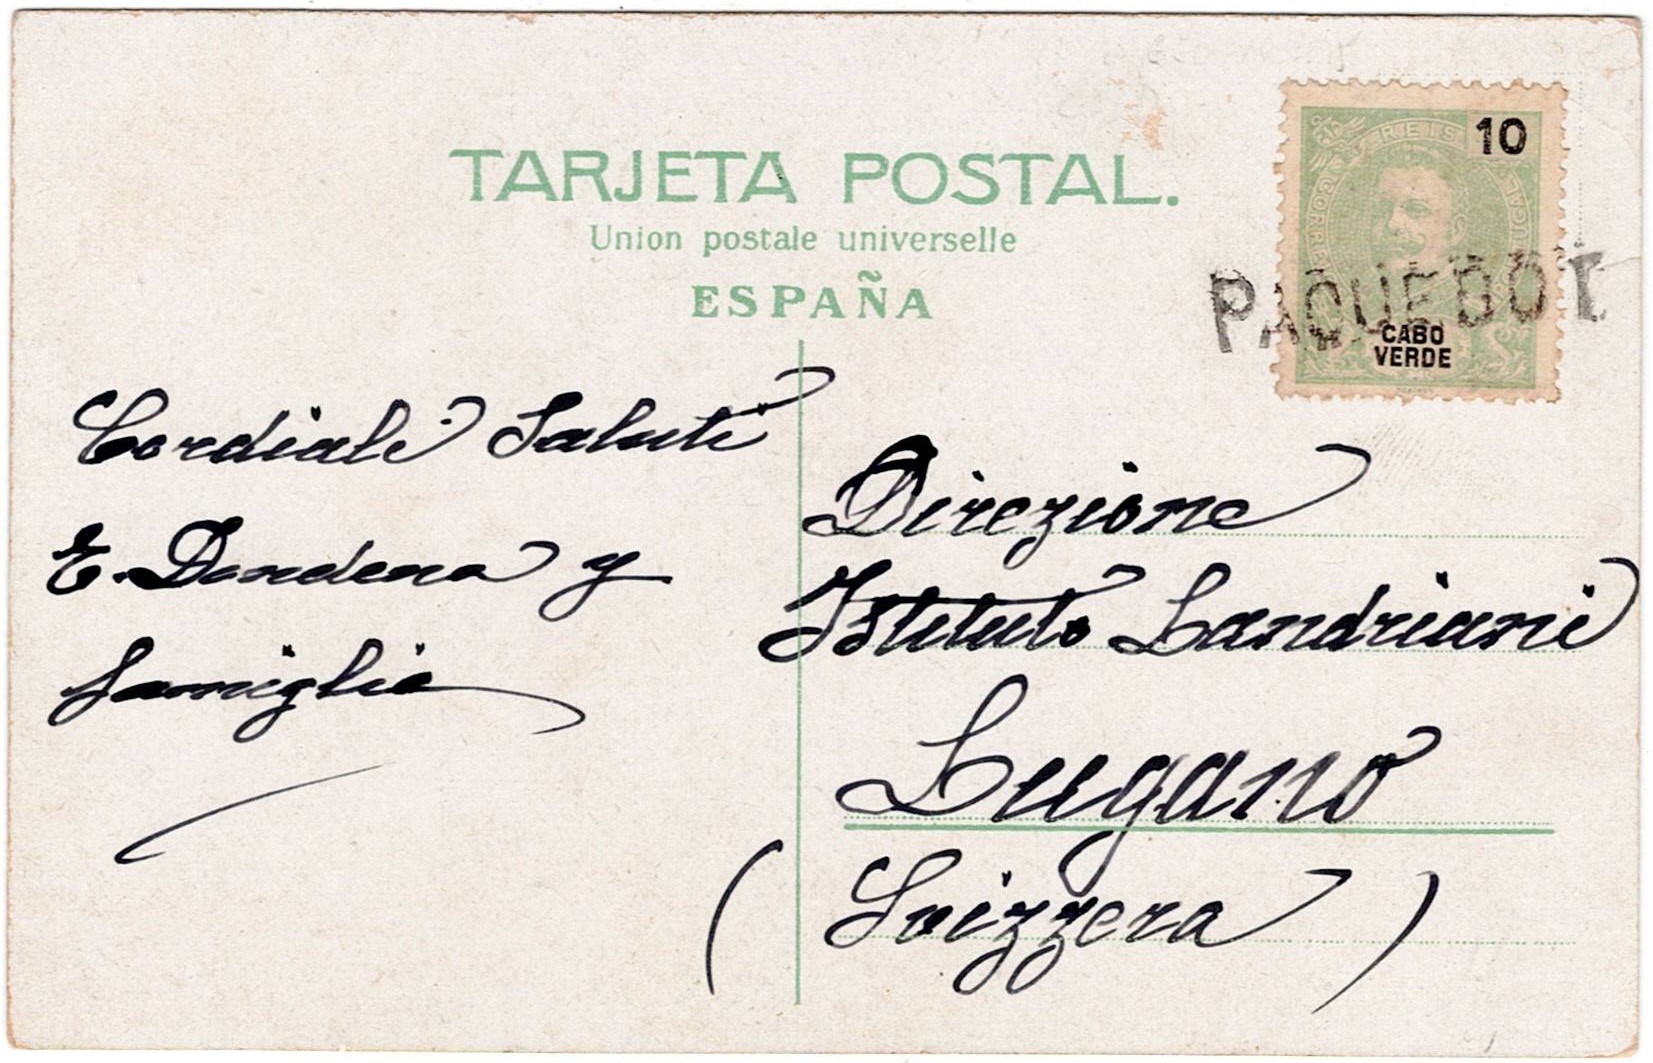 TARJETA POSTAL.
Union postale universelle
ESPAÑA
10
REIS
CABO
VERDE
PAQUEBOT
Cordiali Saluti
E. Dondena y
famiglia
Direzione
Istituto Landriani
Lugano
(Svizzera)